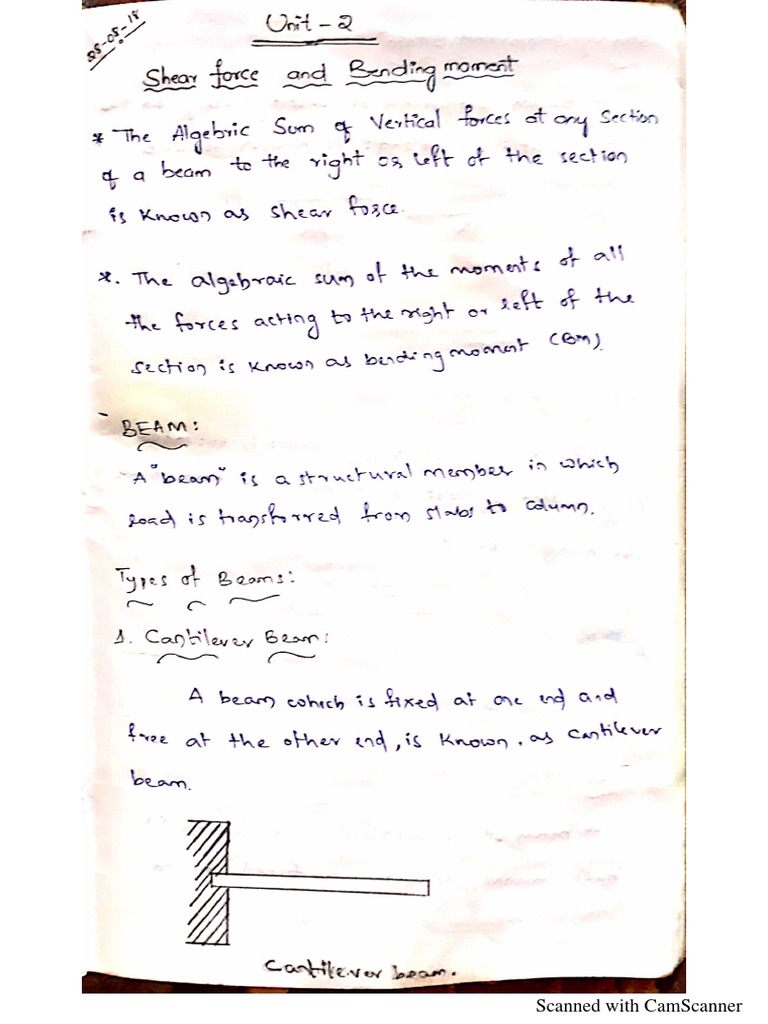 25-05-18
Unit - 2
Shear force and Bending moment
* The Algebric Sum of Vertical forces at any Section
of a beam to the right or left of the section
is known as shear force.
*. The algebraic sum of the moments of all
the forces acting to the right or left of the
section is known as bending moment (BM).
BEAM:
A "beam" is a structural member in which
load is transferred from slabs to column.
Types of Beams:
1. Cantilever Beam:
A beam which is fixed at one end and
free at the other end, is known, as cantilever
beam.
Cantilever beam.
Scanned with CamScanner